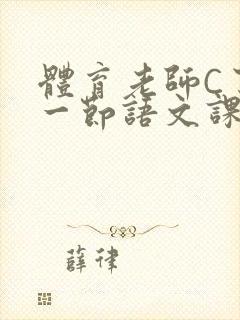 體育老師C
一節語文課
薛律